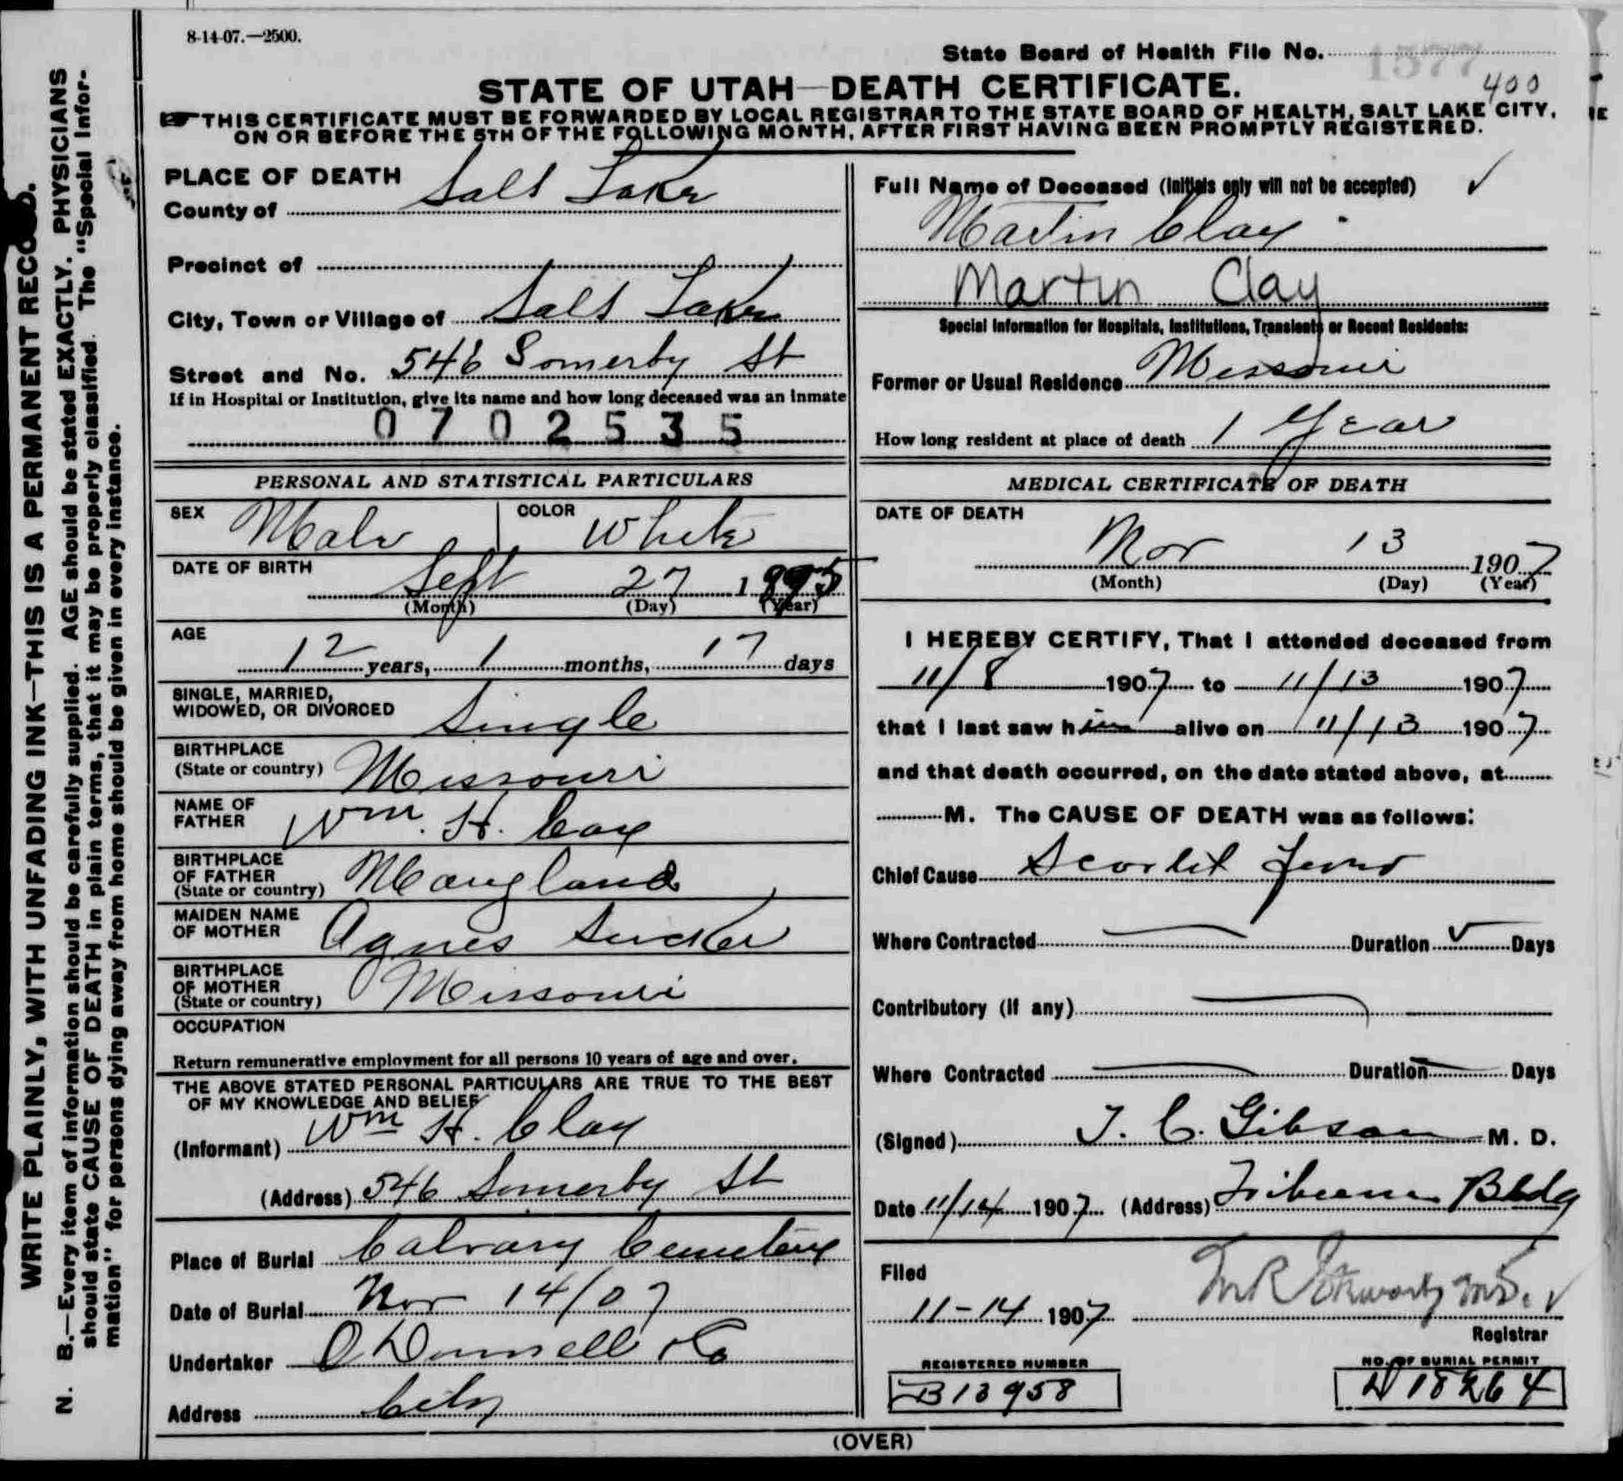 8-14-07.—2500.
State Board of Health File No. 1577
400
STATE OF UTAH—DEATH CERTIFICATE.
THIS CERTIFICATE MUST BE FORWARDED BY LOCAL REGISTRAR TO THE STATE BOARD OF HEALTH, SALT LAKE CITY,
ON OR BEFORE THE 5TH OF THE FOLLOWING MONTH, AFTER FIRST HAVING BEEN PROMPTLY REGISTERED.
WRITE PLAINLY, WITH UNFADING INK—THIS IS A PERMANENT RECORD.
N. B.—Every item of information should be carefully supplied. AGE should be stated EXACTLY. PHYSICIANS
should state CAUSE OF DEATH in plain terms, that it may be properly classified. The "Special Infor-
mation" for persons dying away from home should be given in every instance.
PLACE OF DEATH
County of Salt Lake
Precinct of
City, Town or Village of Salt Lake
Street and No. 546 Somerby St
If in Hospital or Institution, give its name and how long deceased was an inmate
0702535
PERSONAL AND STATISTICAL PARTICULARS
SEX Male COLOR White
DATE OF BIRTH Sept 27 1895
(Month) (Day) (Year)
AGE 12 years, 1 months, 17 days
SINGLE, MARRIED,
WIDOWED, OR DIVORCED Single
BIRTHPLACE
(State or country) Missouri
NAME OF
FATHER Wm. H. Clay
BIRTHPLACE
OF FATHER
(State or country) Maryland
MAIDEN NAME
OF MOTHER Agnes
BIRTHPLACE
OF MOTHER
(State or country) Missouri
OCCUPATION
Return remunerative employment for all persons 10 years of age and over.
THE ABOVE STATED PERSONAL PARTICULARS ARE TRUE TO THE BEST
OF MY KNOWLEDGE AND BELIEF
(Informant) Wm H. Clay
(Address) 546 Somerby St
Place of Burial Calvary Cemetery
Date of Burial Nov 14/07
Undertaker O Donnell & Co
Address City
Full Name of Deceased (Initials only will not be accepted) ✓
Martin Clay
Martin Clay
Special Information for Hospitals, Institutions, Transients or Recent Residents:
Former or Usual Residence Missouri
How long resident at place of death 1 Year
MEDICAL CERTIFICATE OF DEATH
DATE OF DEATH
Nov 13 1907
(Month) (Day) (Year)
I HEREBY CERTIFY, That I attended deceased from
11/8 1907 to 11/13 1907
that I last saw him alive on 11/13 1907
and that death occurred, on the date stated above, at
M. The CAUSE OF DEATH was as follows:
Chief Cause Scarlet Fever
Where Contracted Duration Days
Contributory (if any)
Where Contracted Duration Days
(Signed) T. C. Gibson M. D.
Date 11/14 1907 (Address) Tribune Bldg
Filed
11-14 1907
Registrar
REGISTERED NUMBER
B13958
NO. OF BURIAL PERMIT
D 18264
(OVER)